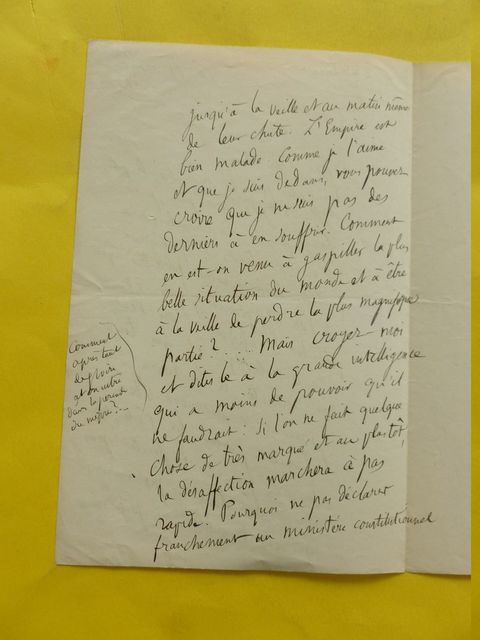 jusqu'à la veille et au matin même
de leur chute. L'Empire est
bien malade. Comme je l'aime
et que je suis dedans, vous pouvez
croire que je ne suis pas des
derniers à en souffrir. Comment
en est-on venu à gaspiller la plus
belle situation du monde et à être
à la veille de perdre la plus magnifique
partie ? .... Mais croyez moi
et dites le à la grande intelligence
qui a moins de pouvoir qu'il
ne faudrait : si l'on ne fait quelque
chose de très marqué et au plus tôt,
la désaffection marchera à pas
rapide. Pourquoi ne pas déclarer
franchement un ministère constitutionnel
Comment
après tant
de gloire
est-on entré
dans la période
du mépris ? ...